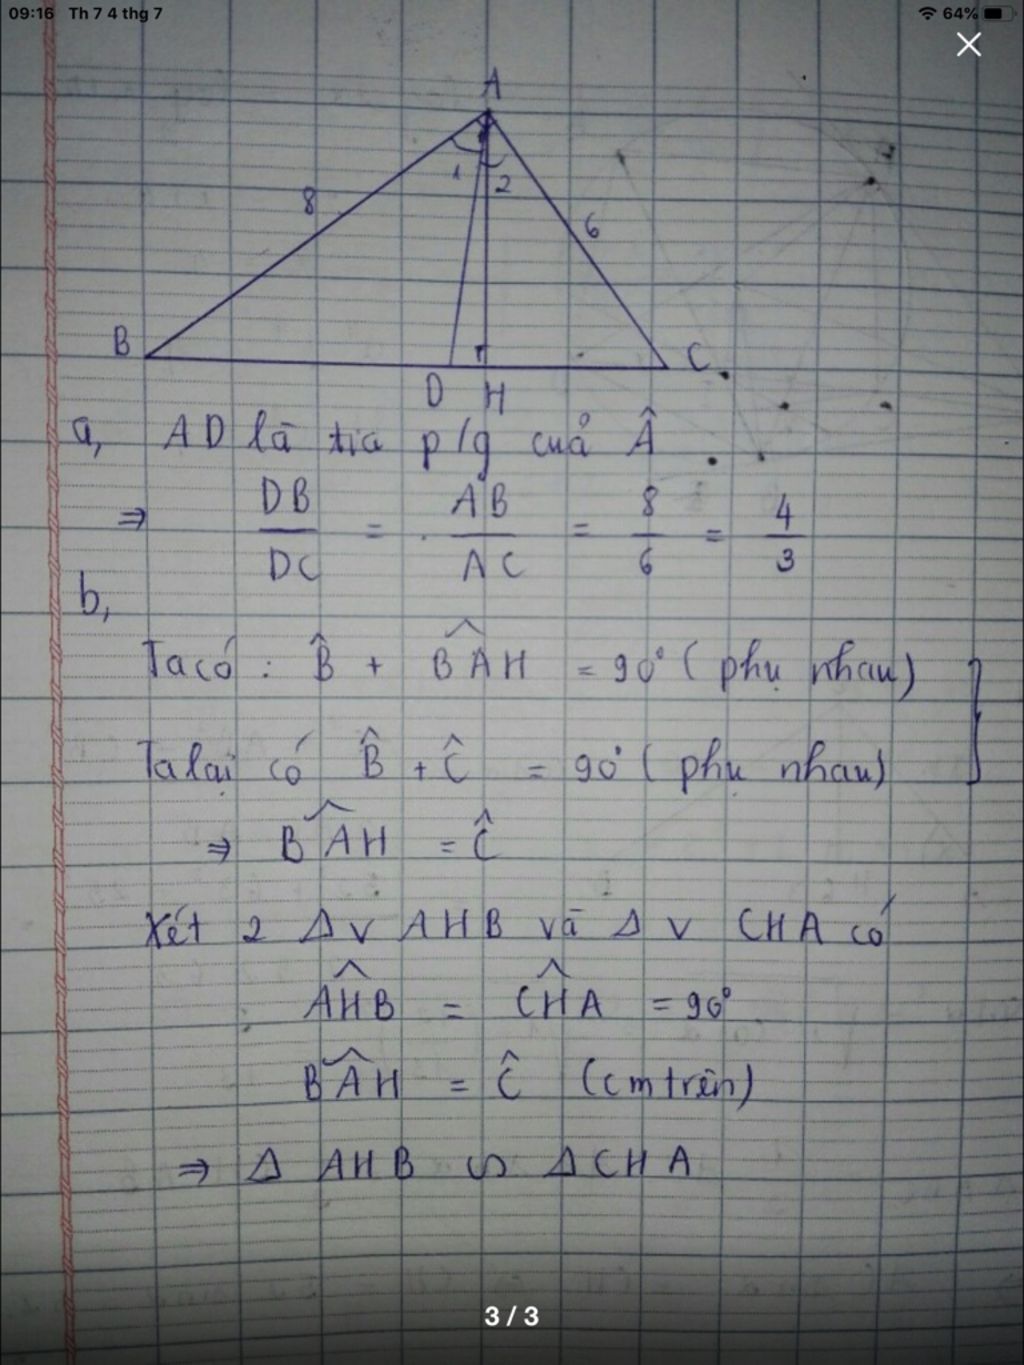 09:16 Th 7 4 thg 7
64%
A
1 2
8
6
B
C
D H
a, AD là tia p/g của Â
⇒ DB/DC = AB/AC = 8/6 = 4/3
b,
Ta có : B̂ + BÂH = 90° ( phụ nhau )
Ta lại có B̂ + Ĉ = 90° ( phụ nhau )
⇒ BÂH = Ĉ
Xét 2 Δ v AHB và Δ v CHA có
AĤB = CĤA = 90°
BÂH = Ĉ (cm trên)
⇒ Δ AHB ∽ Δ CHA
3 / 3